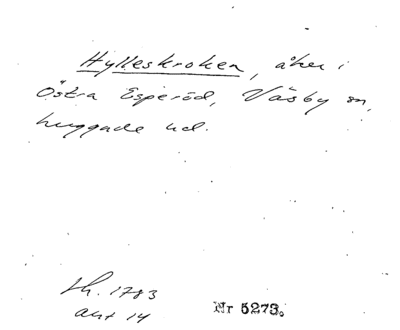 Hylleskroken, åker i
Östra Esperöd, Väsby sn,
huggade ud.
sk. 1783
akt 14
Nr 5273.